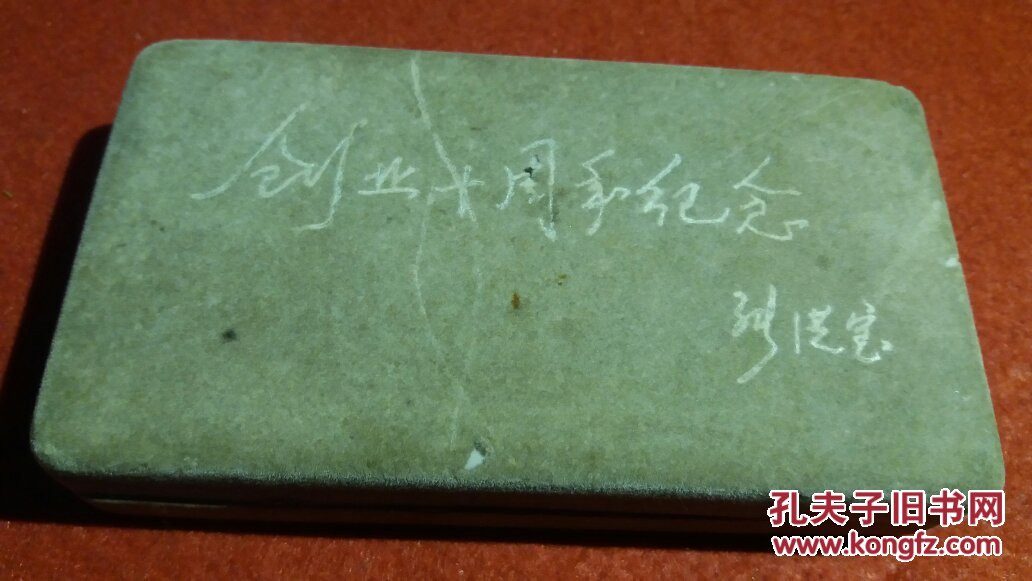 创业十周年纪念
洪宝
孔夫子旧书网
www.kongfz.com